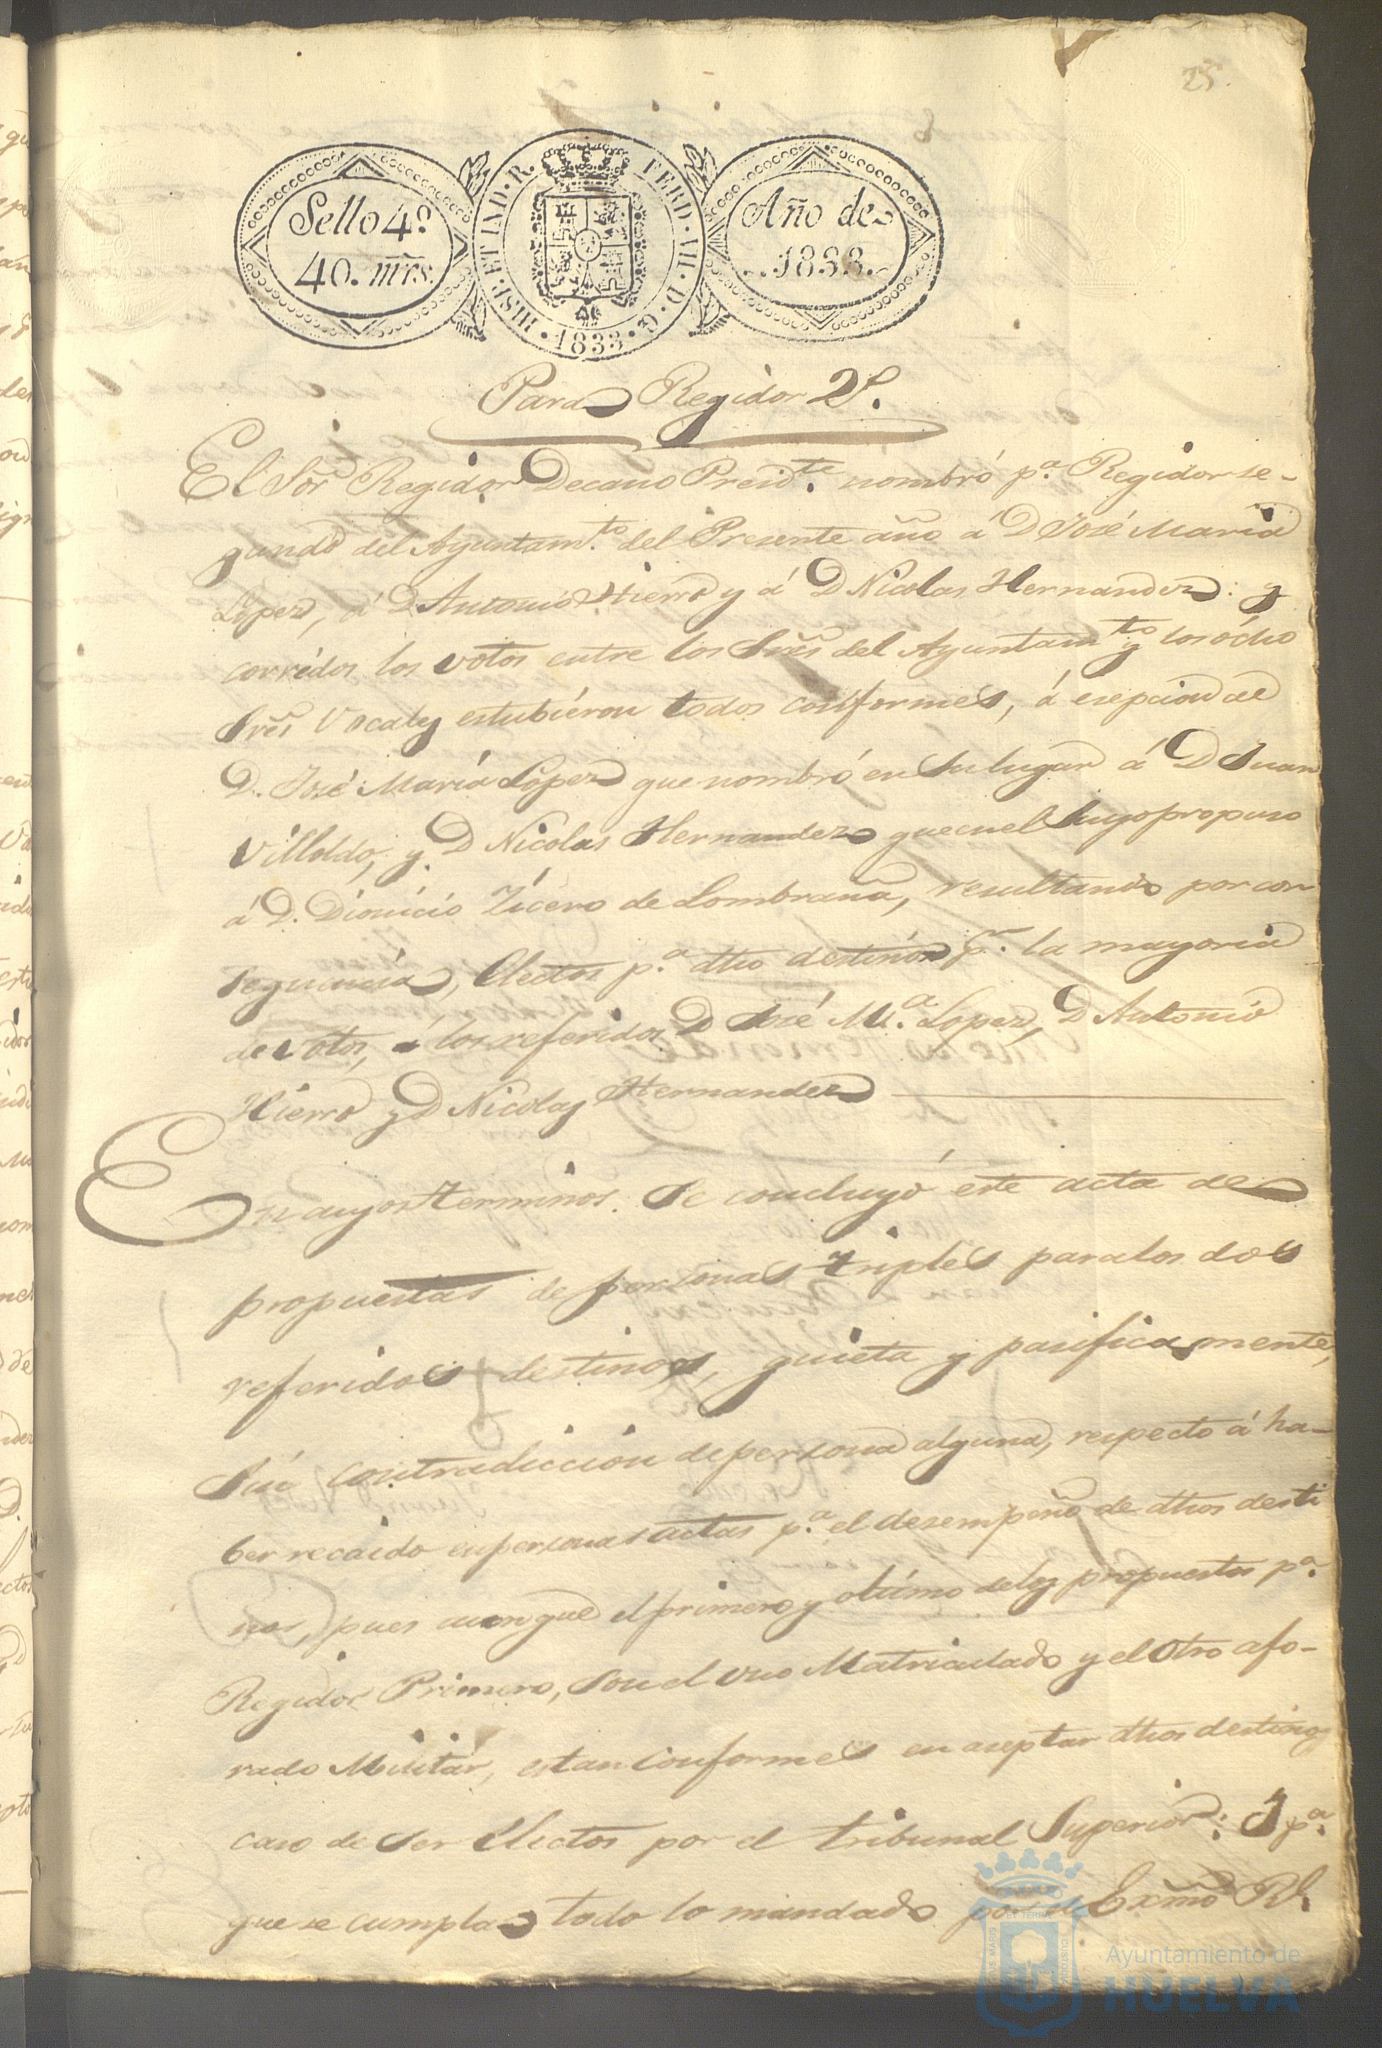 25.
Sello 4º
40. mrs.
HISP. ET IND. R. FERD. VII. D. G. 1833.
Año de
1833.
Para Regidor 2º.
El Sor Regidor Decano Presidte. nombró pª. Regidor se-
gundo del Ayuntamto. del Presente año á D José Maria
Lopez, á D Antonio Hierro y á D Nicolas Hernandez: y
corridos los votos entre los Sres del Ayuntamto. y los ócho
Sres Vocales estubieron todos conformes, á esepcion de
D. José María Lopez que nombró en su lugar á D Juan
Villoldo, y D Nicolas Hernandez que en el suyo propuso
á D. Dionicio Ticero de Lombraña, resultando por con-
seguencia, Electos pª. dho destino pr. la mayoria
de votos, á los referidos D José Mª. Lopez, D Antonio
Hierro y D Nicolas Hernandez
En cuyos terminos. Se concluyó este acta de
propuestas de personas triples para los dos
referidos destinos, quieta y pasificamente,
Sin contradiccion de persona alguna, respecto á ha-
ber recaido en personas actas pª. el desempeño de dhos desti
nos, pues aunque el primero y ultimo de los propuestos pª.
Regidor Primero, Son el uno Matriculado y el otro afo-
rado Militar, estan conformes en aseptar dhos destinos
caso de ser electos por el tribunal Superior: Y pª.
que se cumpla todo lo mandado por el Exmo Rl.
Ayuntamiento de
HUELVA